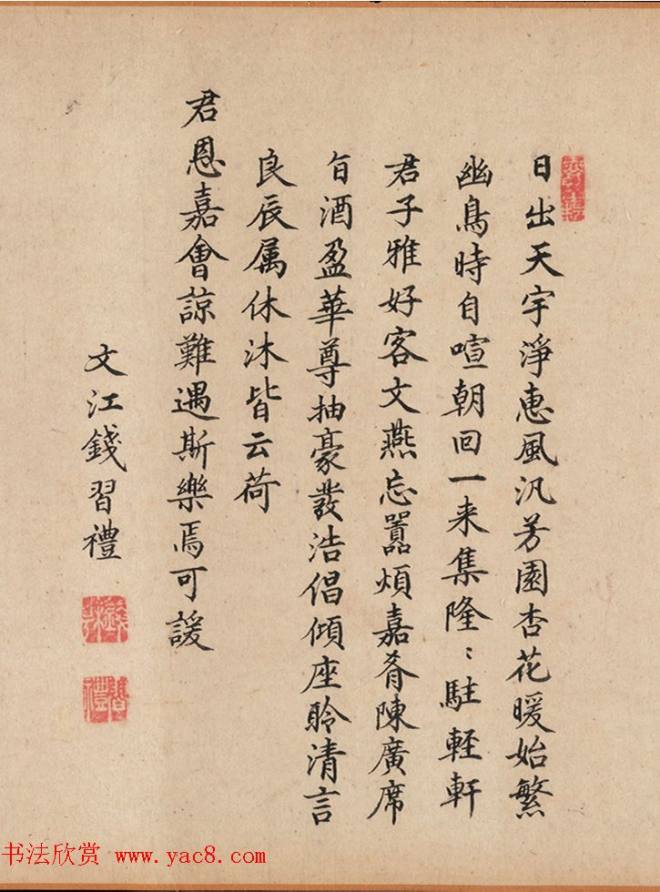 日出天宇淨惠風汎芳園杏花暖始繁
幽鳥時自喧朝回一来集隆〻駐軽軒
君子雅好客文燕忘囂煩嘉肴陳廣席
旨酒盈華尊抽豪發浩倡傾座聆清言
良辰属休沐皆云荷
君恩嘉會諒難遇斯樂焉可諼
文江錢習禮
習禮
书法欣赏 www.yac8.com